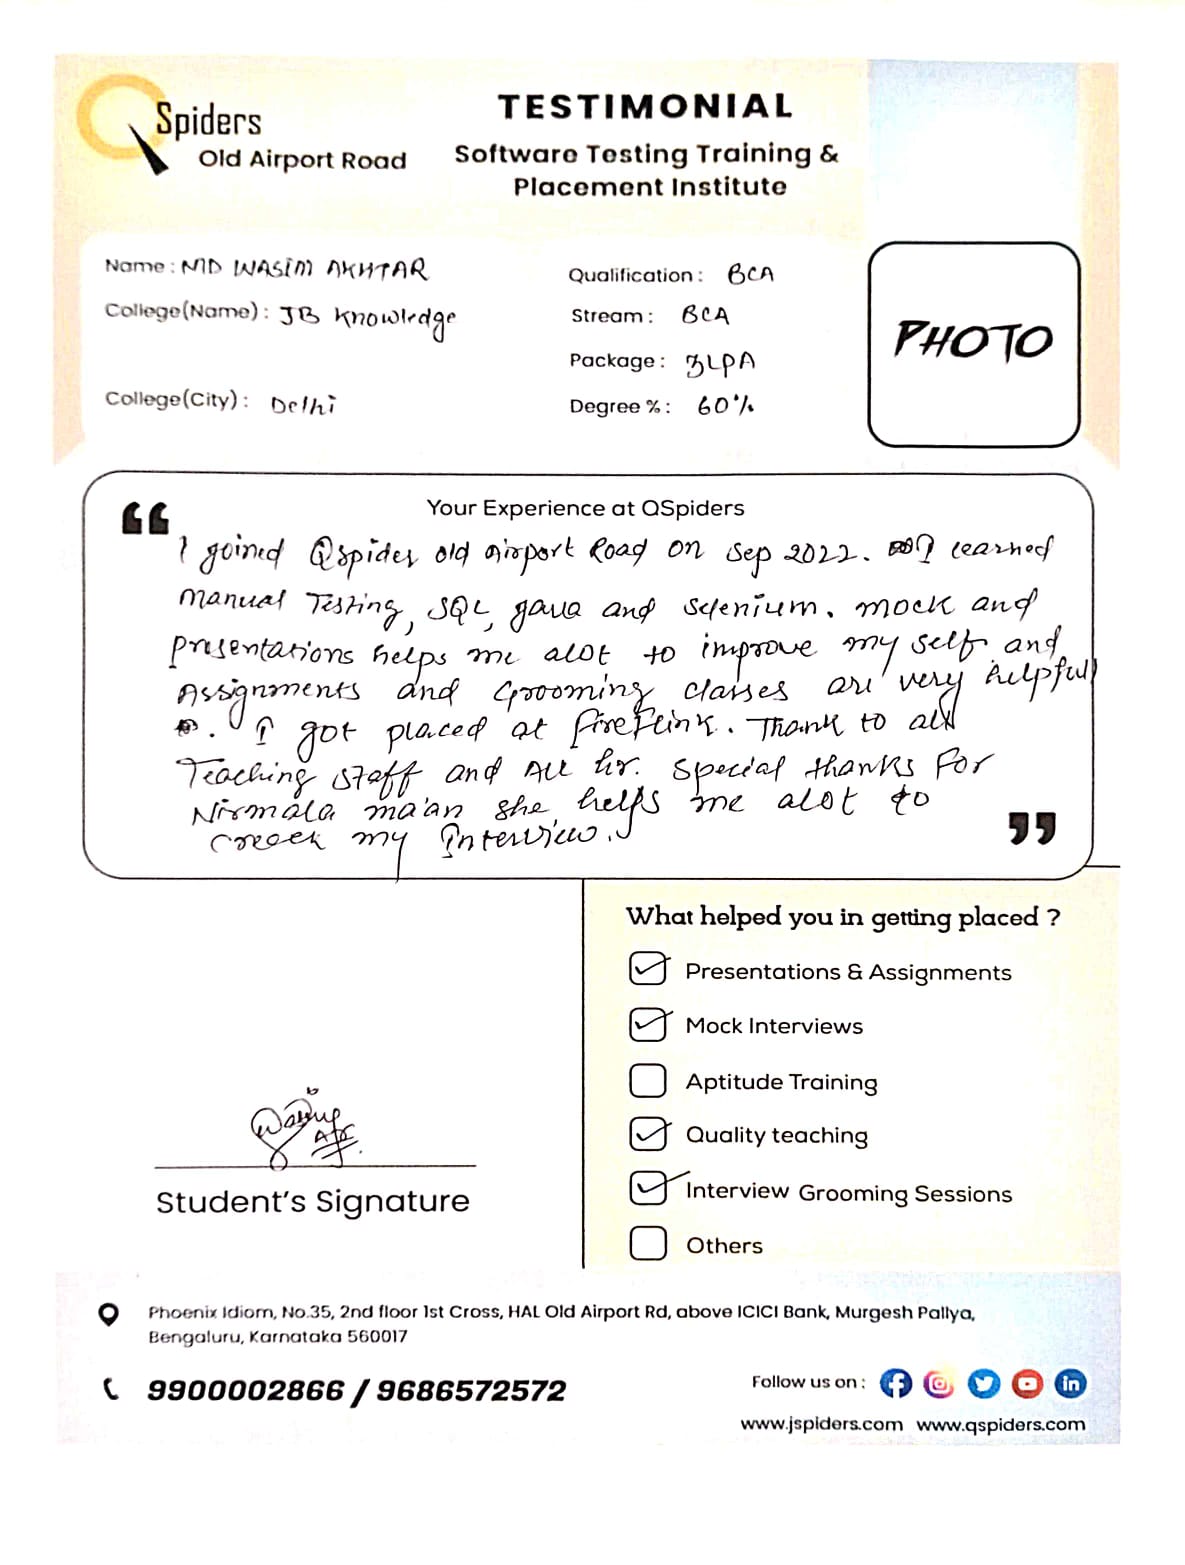 QSpiders
Old Airport Road
TESTIMONIAL
Software Testing Training &
Placement Institute
Name : MD WASIM AKHTAR
College(Name) : JB Knowledge
College(City) : Delhi
Qualification : BCA
Stream : BCA
Package : 3LPA
Degree % : 60%
PHOTO
Your Experience at QSpiders
“
I joined Qspider old Airport Road on Sep 2022. I learned
manual Testing, SQL, java and Selenium. mock and
presentations helps me alot to improve my self and
Assignments and Grooming classes are very helpful
. I got placed at fireFlink. Thank to all
Teaching staff and All hr. Special thanks for
Nirmala ma'an she helps me alot to
creack my Interview.
”
What helped you in getting placed ?
Presentations & Assignments
Mock Interviews
Aptitude Training
Quality teaching
Interview Grooming Sessions
Others
Student's Signature
Phoenix Idiom, No.35, 2nd floor 1st Cross, HAL Old Airport Rd, above ICICI Bank, Murgesh Pallya,
Bengaluru, Karnataka 560017
9900002866 / 9686572572
Follow us on :
www.jspiders.com www.qspiders.com